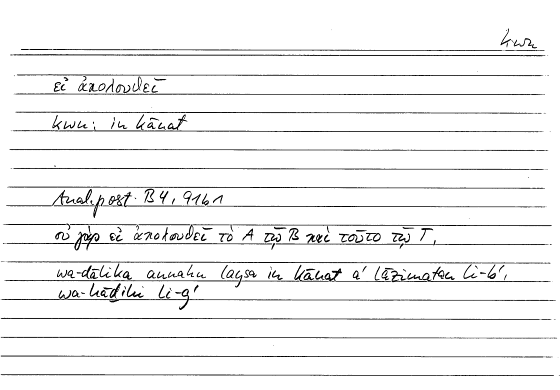 kwn
εἰ ἀκολουθεῖ
kwn: in kānat
Anal. post. B 4, 91b1
οὐ γὰρ εἰ ἀκολουθεῖ τὸ A τῷ B καὶ τοῦτο τῷ Γ,
wa-ḏālika annahu laysa in kānat a' lāzimatan li-b',
wa-hāḏihi li-ǧ'